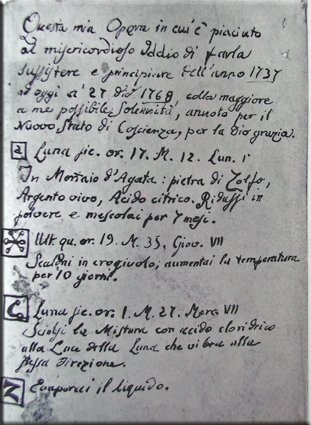 Questa mia Opera in cui è piaciuto
al misericordioso Iddio di farla
sussistere e principiare dell'anno 1737
ad oggi a' 27 di 1768 colla maggiore
a me possibile Solennità, annoto per il
Nuovo Stato di Coscienza, per la dio grazia.
Luna pic. or. 17. M. 12. Lun. I
In Mortaio d'Agata: pietra di Zolfo,
Argento vivo, Acido citrico. Ridussi in
polvere, e mescolai per 7 mesi.
Ult. qu. or. 19. M. 35. Giov. VII
Scaldai in crogivolo; aumentai la temperatura
per 10 giorni.
C Luna pic. or. 1. M. 27. Merc VII
Sciolsi la Mistura con acido cloridrico
alla Luce della Luna che vibra alla
stessa Direzione.
N Evaporai il liquido.